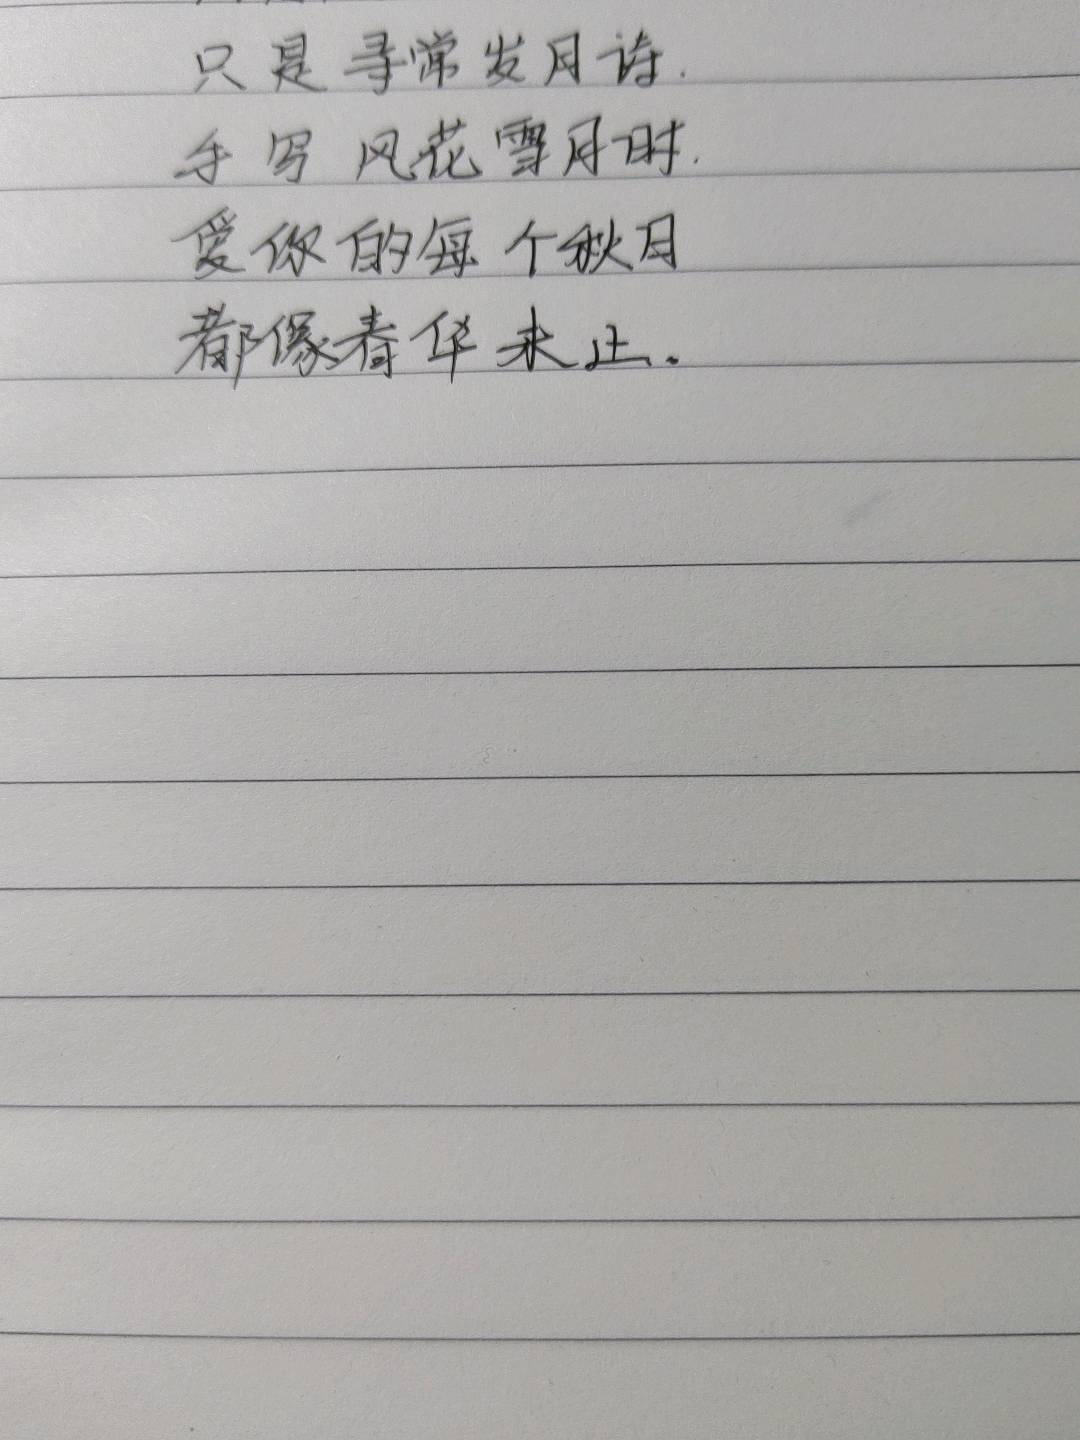 只是寻常发月诗.
手写风花雪月时.
爱你的每个秋月
都像春华未止.